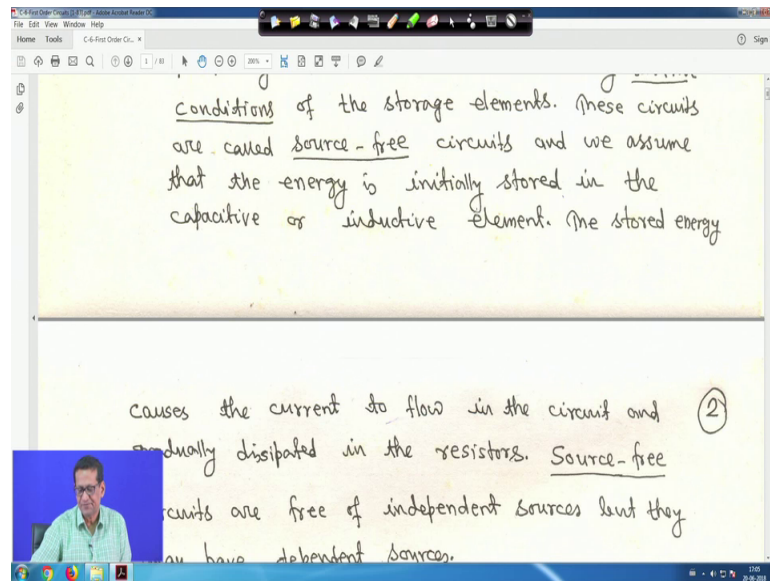 C-6-First Order Circuits [1-83].pdf - Adobe Acrobat Reader DC
File Edit View Window Help
Home Tools C-6-First Order Cir... × Sign
1 / 83 200%
conditions of the storage elements. These circuits
are called source-free circuits and we assume
that the energy is initially stored in the
capacitive or inductive element. The stored energy
causes the current to flow in the circuit and 2
gradually dissipated in the resistors. Source-free
circuits are free of independent sources but they
may have dependent sources.
17:05
20-06-2019